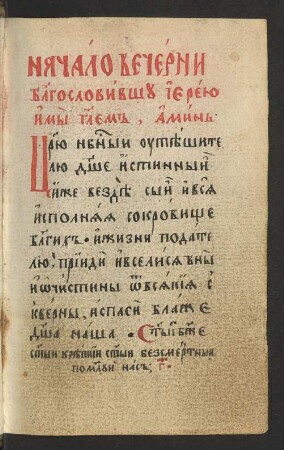 НАЧАЛО ВЕЧЕРНИ
Бл҃гословившу їерею
и мы гл҃емъ, Аминь.
Ц҃рю нб҃ныи оутѣшите
лю дш҃е истинныи
иже вездѣ сыи ивсѧ
исполнѧѧ сокровище
бл҃гихъ. ижизни подате
лю прїиди ивселисѧ вны
иѡчистины ѿвсѧкїѧ с
кверны, испаси блаже
дш҃а наша. Ст҃ыи бж҃е
ст҃ыи крѣпкїи ст҃ыи безсмертныи
помилуи насъ; г҃.